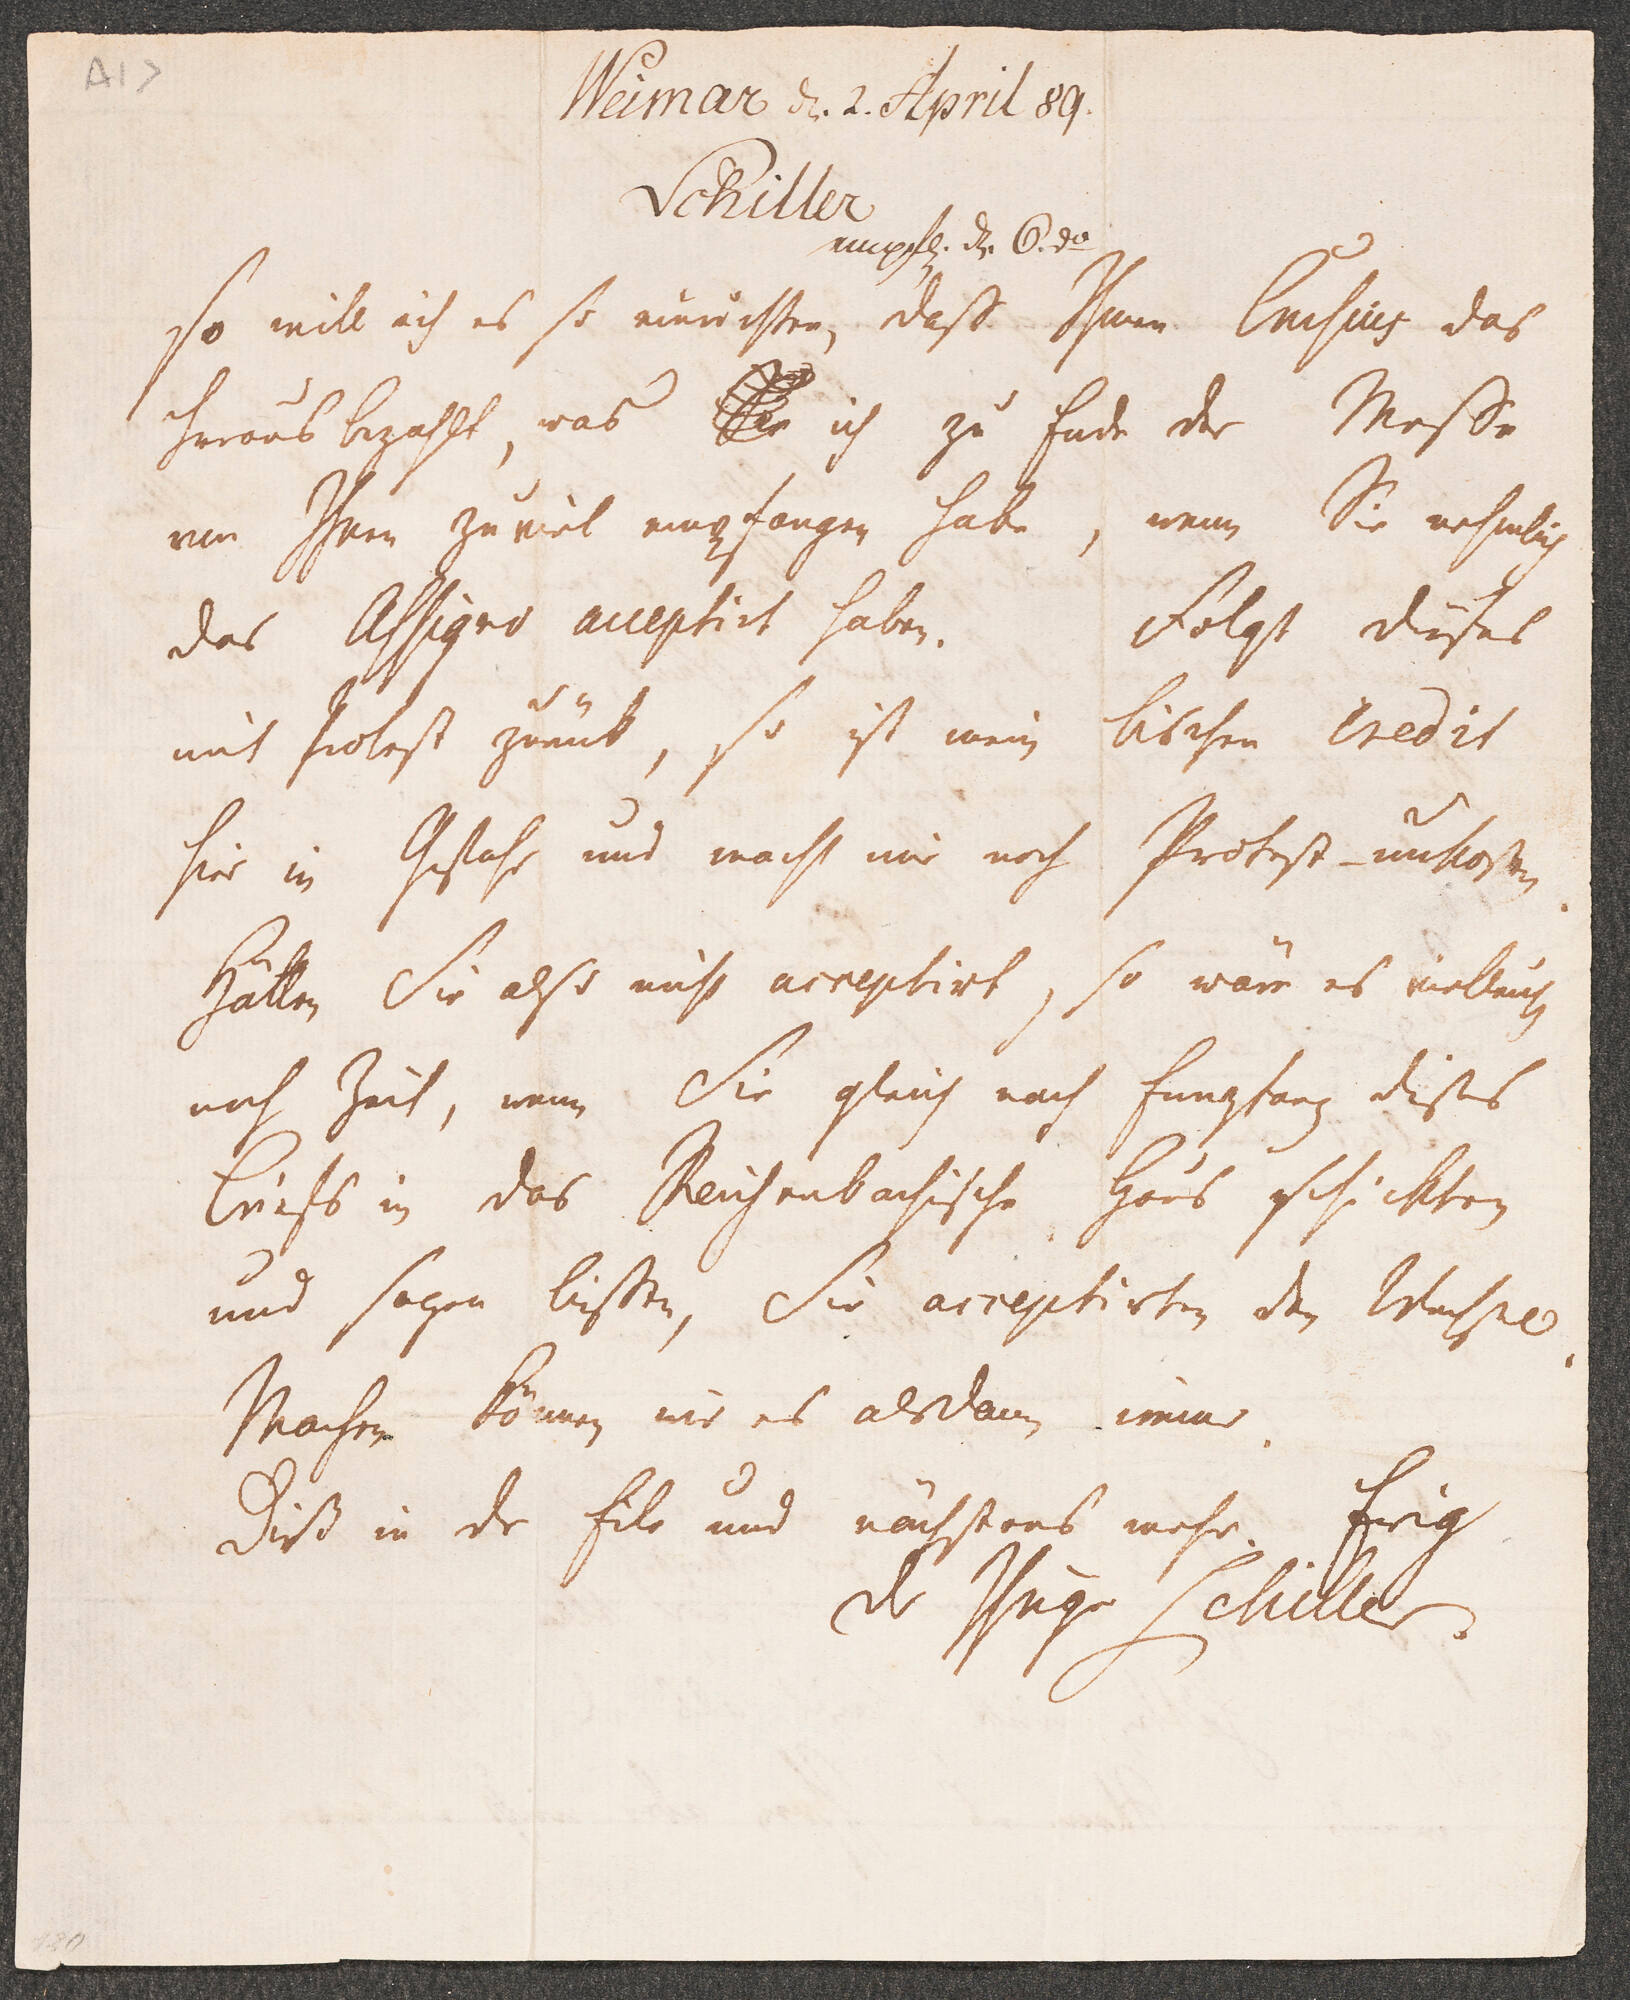 A17
Weimar d. 2. April 89.
Schiller
empf. d. 6. do
so will ich es so einrichten, daß Ihnen Crusius das
herausbezahlt, was ich zu Ende der Messe
von Ihnen zuviel empfangen habe, wenn Sie nehmlich
das Assigno acceptirt haben. Folgt dieses
mit Protest zurück, so ist mein bischen Credit
hier in Gefahr und macht mir noch Protest-unkosten.
Hätten Sie also nicht acceptirt, so wäre es vielleicht
noch Zeit, wenn Sie gleich nach Empfang dieses
Briefs in das Reichenbachische Haus schickten
und sagen liessen, Sie acceptirten den Wechsel.
Machen können wir es alsdann immer.
Dieß in der Eile und nächstens mehr. Ewig
der Ihrige Schiller.
180